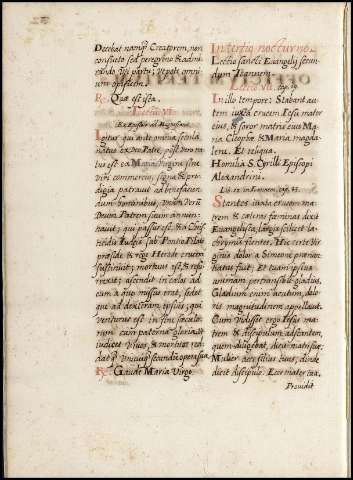 Decebat namq; Creatorem, non
consueto sed peregrino & admi-
rando
omni-
um opificem.
Quae est ista.
Lectio VI.
Ex Epistola ad Magnesianos
qui ante omnia saecula
natus ex Deo Patre, post vero na-
tus est ex Maria Virgine sine
viri commercio, signa & pro-
digia patravit ad
hominibus, unum Deum
Deum Patrem suum annun-
tiavit; qui passus est, & a Chri-
sub Pontio Pilato
praeside & rege Herode crucem
sustinuit; mortuus est, & resur-
rexit; ascendit in caelos ad
eum a quo missus erat, sedet-
que ad dexteram ipsius; qui
venturus est in fine saeculo-
rum cum paterna gloria, ut
iudicet vivos, & mortuos, red-
dat q; unicuiq; secundum opera sua.
Gaude Maria Virgo.
In tertio nocturno.
Lectio sancti Evangelij secun-
dum Ioannem.
Lectio VII. cap. 19
In illo tempore: Stabant au-
tem iuxta crucem Iesu mater
eius, & soror matris eius Ma-
ria Cleophae, & Maria magda-
lene. Et reliqua.
Homilia S. Cyrilli Episcopi
Alexandrini.
Lib. 12. in Ioannem, cap.
Stantes iuxta crucem ma-
trem & caeteras faeminas dixit
Evangelista, largia scilicet la-
chrymis flentes. Hic certe Vir-
ginis dolor a Simeone praenun-
tiatus fuit. Et tuam ipsius
animam pertransibit gladius,
Gladium enim acutum, dolo-
ris magnitudinem appellavit.
Cum vidisset ergo Iesus ma-
trem & discipulum adstantem,
quem diligebat, dicit matri suae:
Mulier ecce filius tuus, deinde
dicit discipulo: Ecce mater tua,
Providit